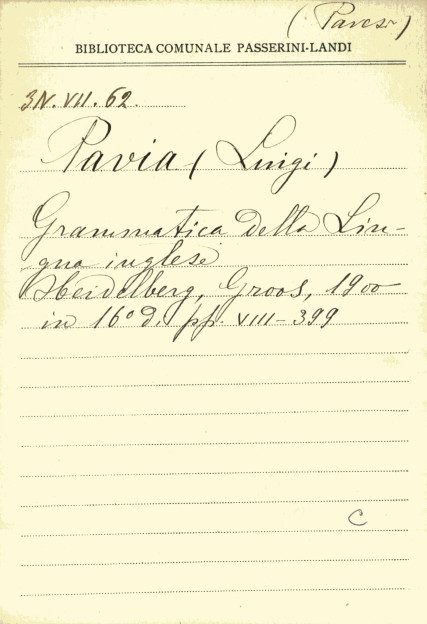 (Pavesi)
BIBLIOTECA COMUNALE PASSERINI-LANDI
3N.VII.62.
Pavia (Luigi)
Grammatica della Lin-
gua inglese
Heidelberg, Groos, 1900
in 16° d. pp. VIII-399
C